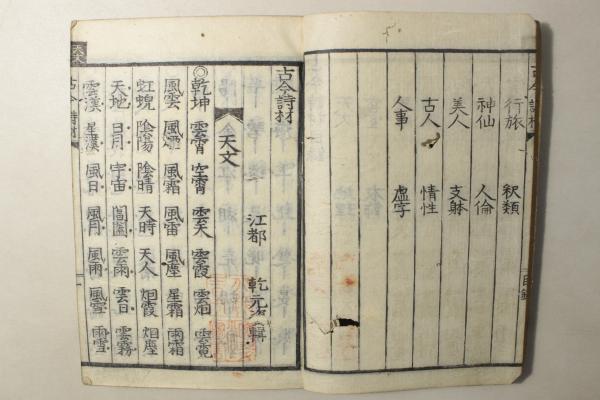 古今詩材
行旅 釈類
神仙 人倫
美人 支躰
古人 情性
人事 虚字
目録
古今詩材
江都 乾元 輯
天文
◎乾坤 雲霄 空霄 雲天 雲霞 雲烟 雲霓
風雲 風煙 風霜 風雷 風塵 星霜 雨霜
虹蜺 陰陽 陰晴 天時 天人 烟霞 烟塵
天地 日月 宇宙 閶闔 雲雨 雲日 雲霧
雲漢 星漢 風日 風月 風雨 風雪 雨雪
天文 古今詩材 一